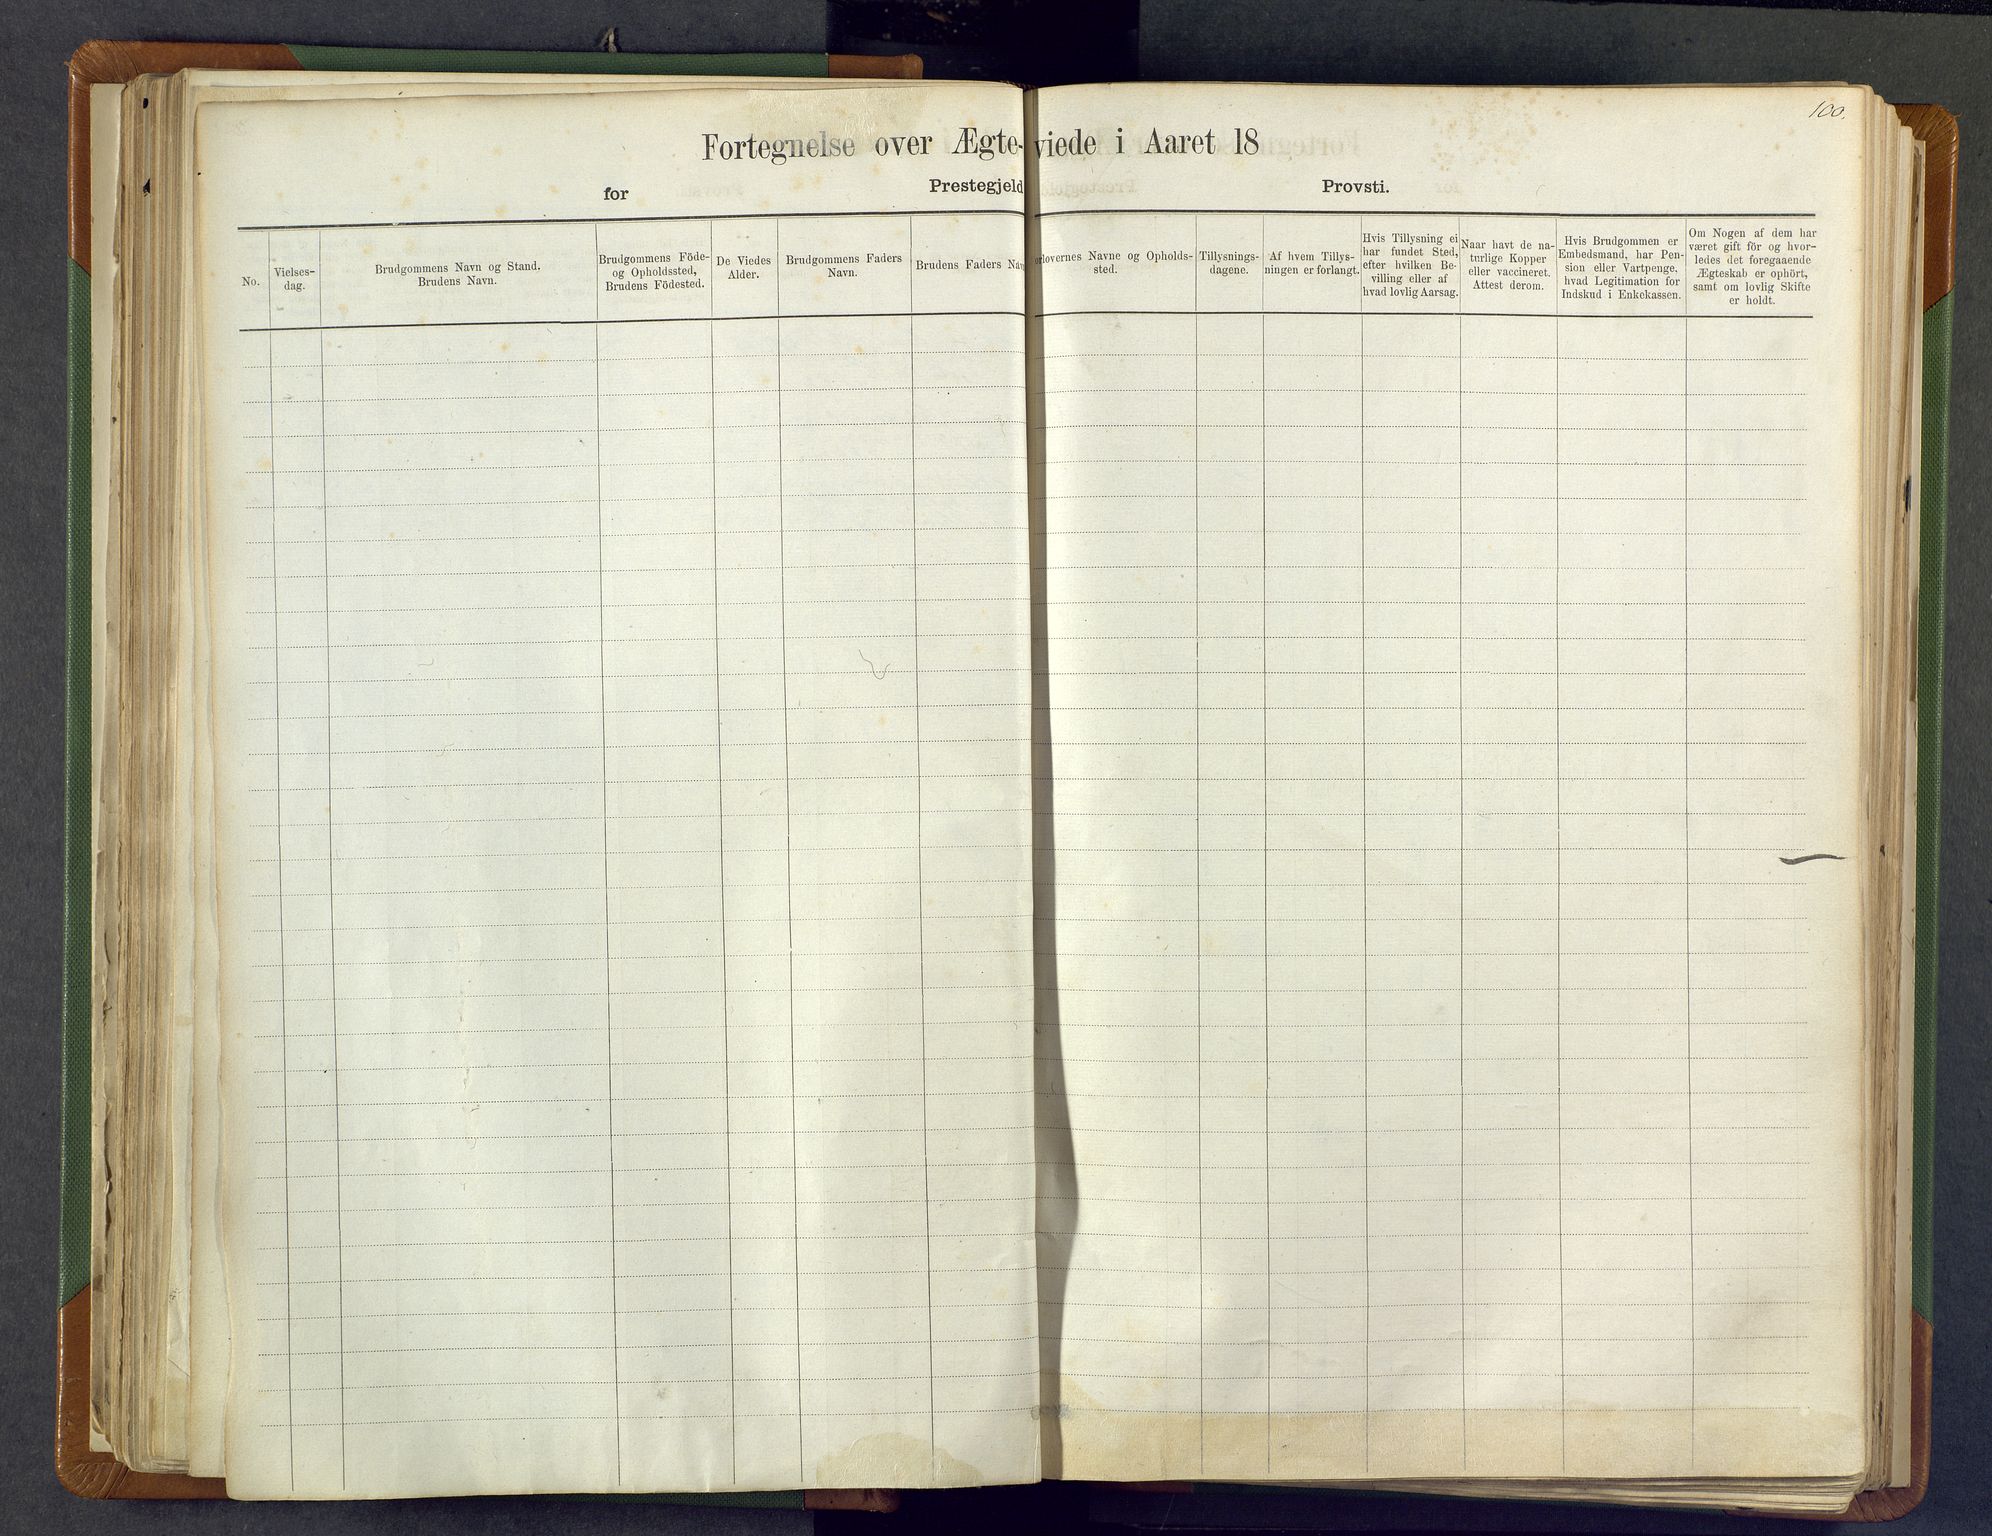 100.
Fortegnelse over Ægte-viede i Aaret 18
for Prestegjeld Provsti.
No.
Vielses-
dag.
Brudgommens Navn og Stand.
Brudens Navn.
Brudgommens Föde-
og Opholdssted,
Brudens Födested.
De Viedes
Alder.
Brudgommens Faders
Navn.
Brudens Faders Nav
orlovernes Navne og Opholds-
sted.
Tillysnings-
dagene.
Af hvem Tillys-
ningen er forlangt.
Hvis Tillysning ei
har fundet Sted,
efter hvilken Be-
villing eller af
hvad lovlig Aarsag.
Naar havt de na-
turlige Kopper
eller vaccineret.
Attest derom.
Hvis Brudgommen er
Embedsmand, har Pen-
sion eller Vartpenge,
hvad Legitimation for
Indskud i Enkekassen.
Om Nogen af dem har
været gift för og hvor-
ledes det foregaaende
Ægteskab er ophört,
samt om lovlig Skifte
er holdt.